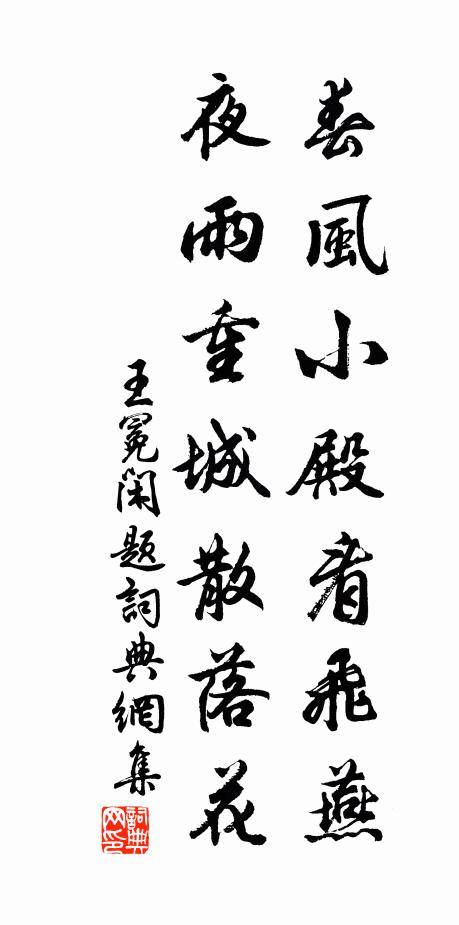 春風小殿看飛燕
夜雨重城散落花
王冕閑題詞典網集
詞典網印